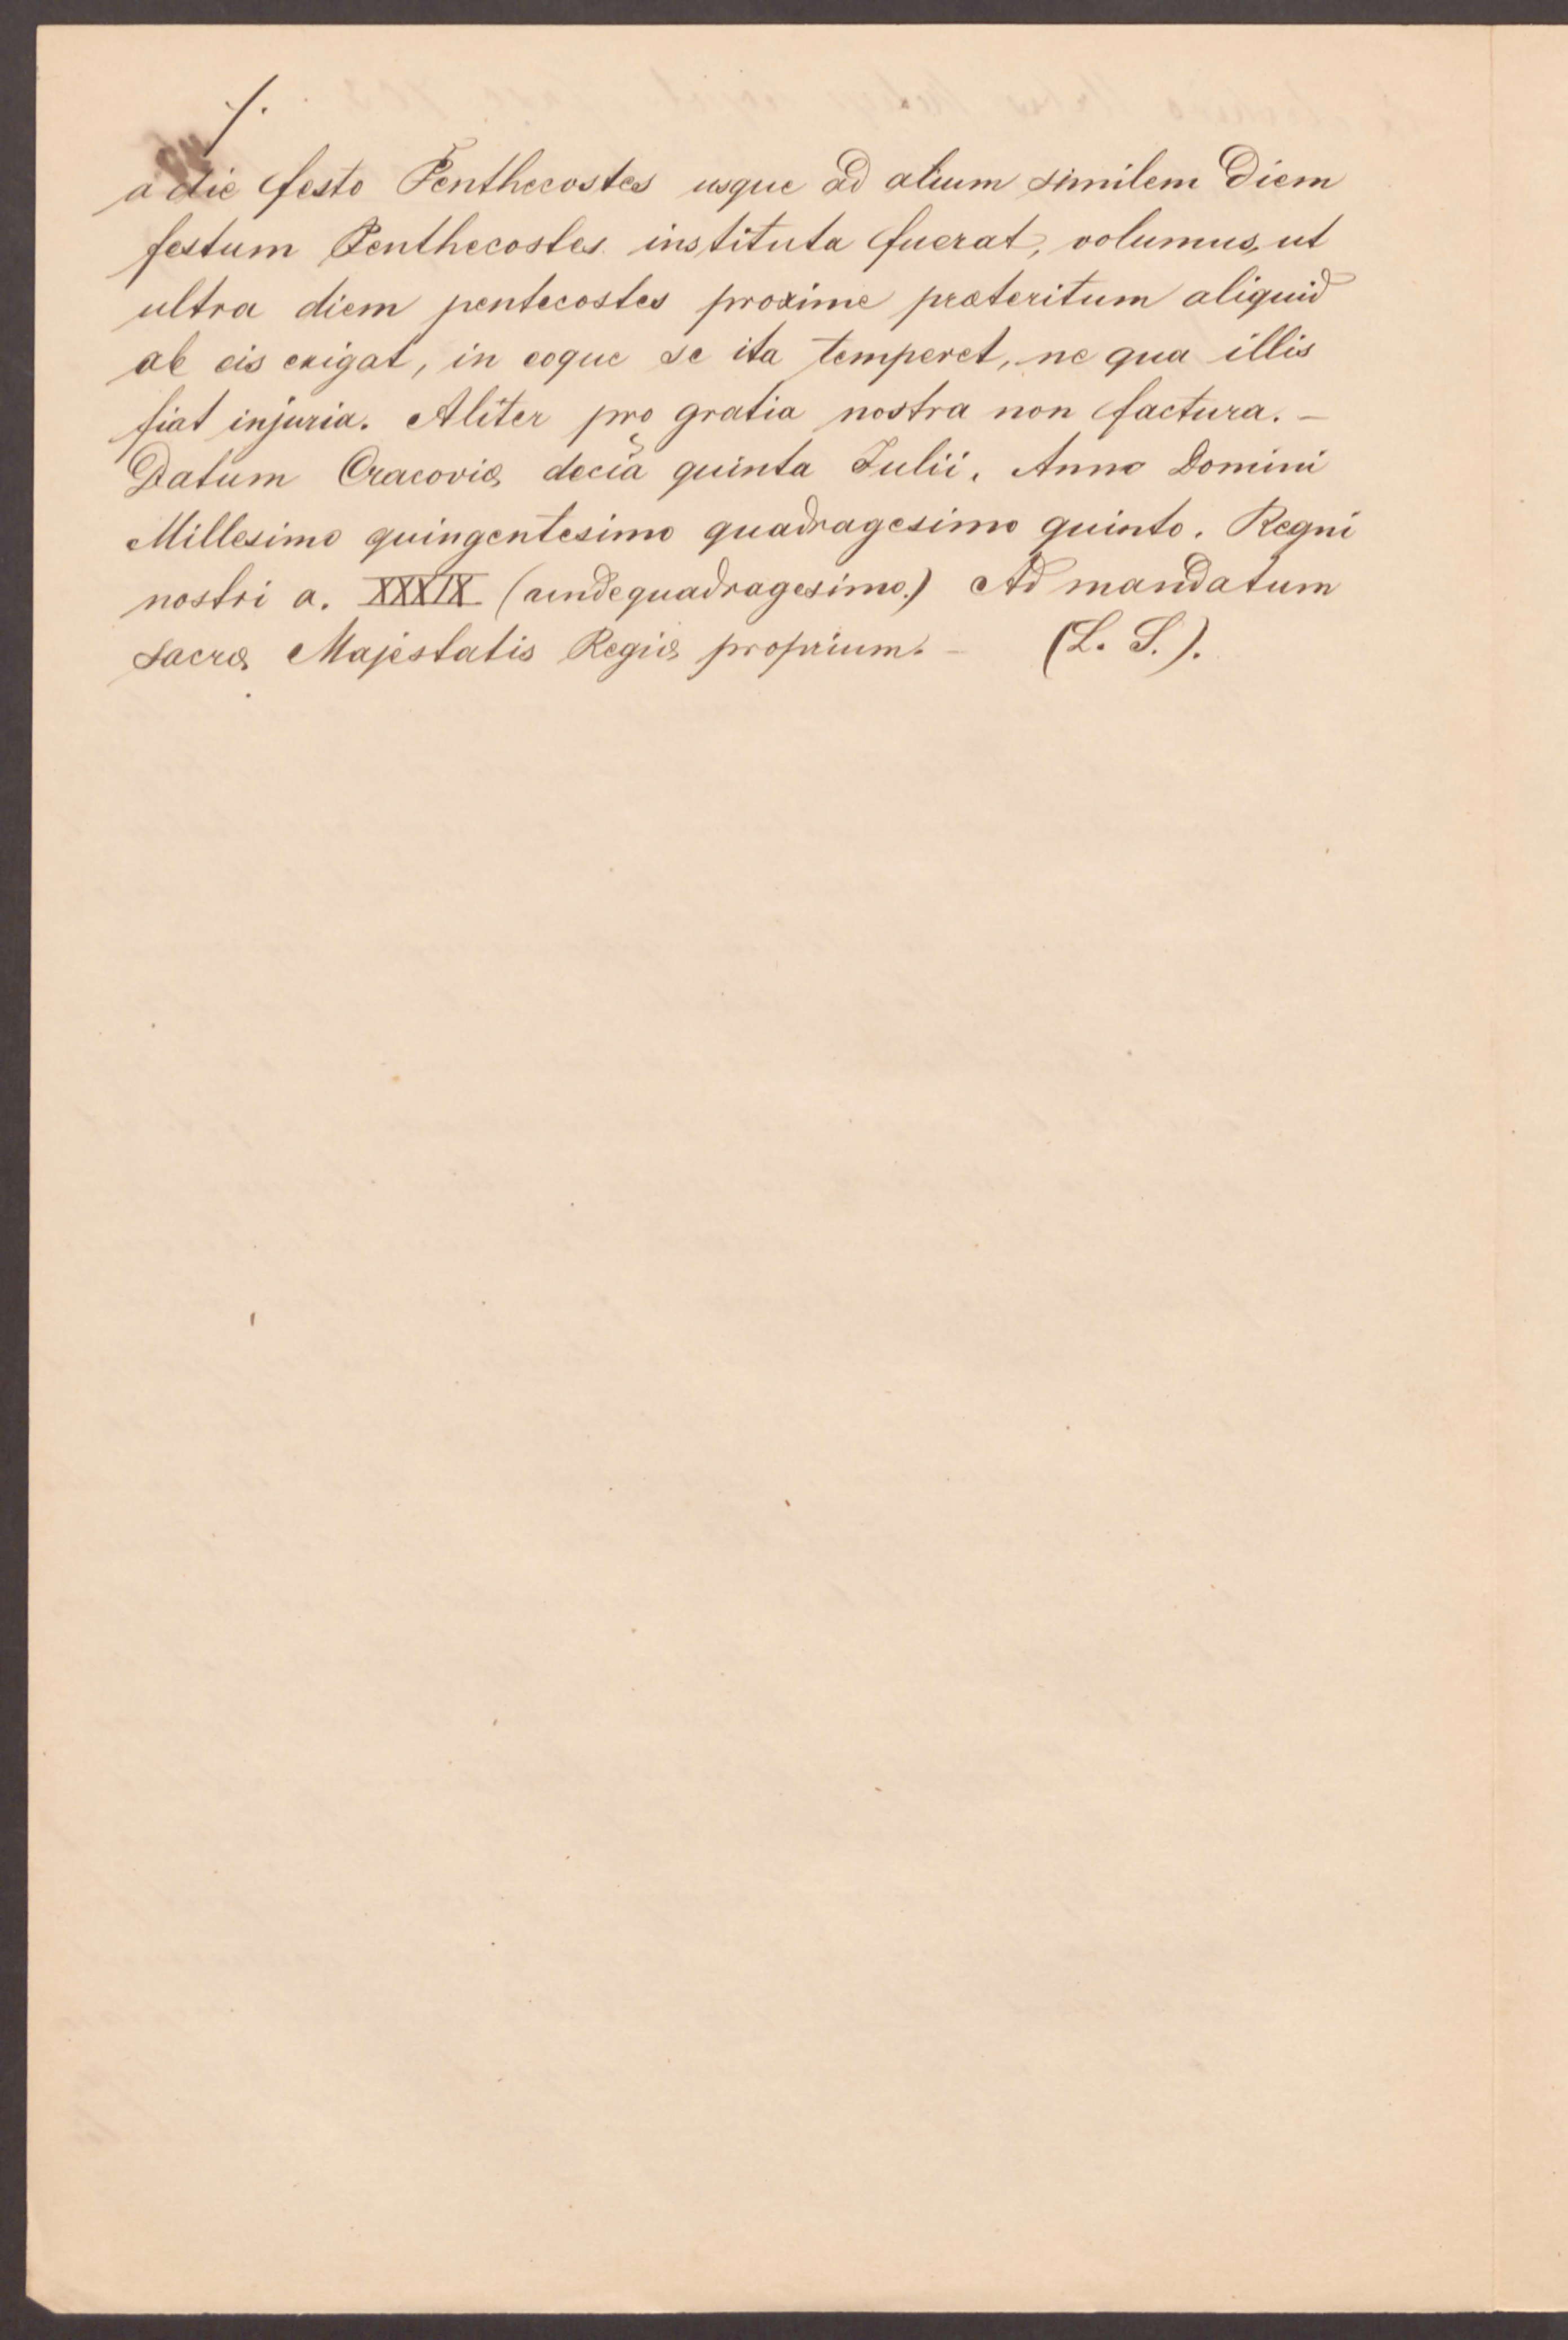 ./.
a die festo Penthecostes usque ad alium similem diem
festum Penthecostes instituta fuerat, volumus, ut
ultra diem pentecostes proxime præteritum aliquid
ab eis exigat, in eoque se ita temperet, ne qua illis
fiat injuria. Aliter pro gratia nostra non factura. –
Datum Cracoviæ decia quinta Julii. Anno Domini
Millesimo quingentesimo quadragesimo quinto. Regni
nostri a. XXXIX (undequadragesimo.) Ad mandatum
sacræ Majestatis Regiæ proprium. – (L. S.).